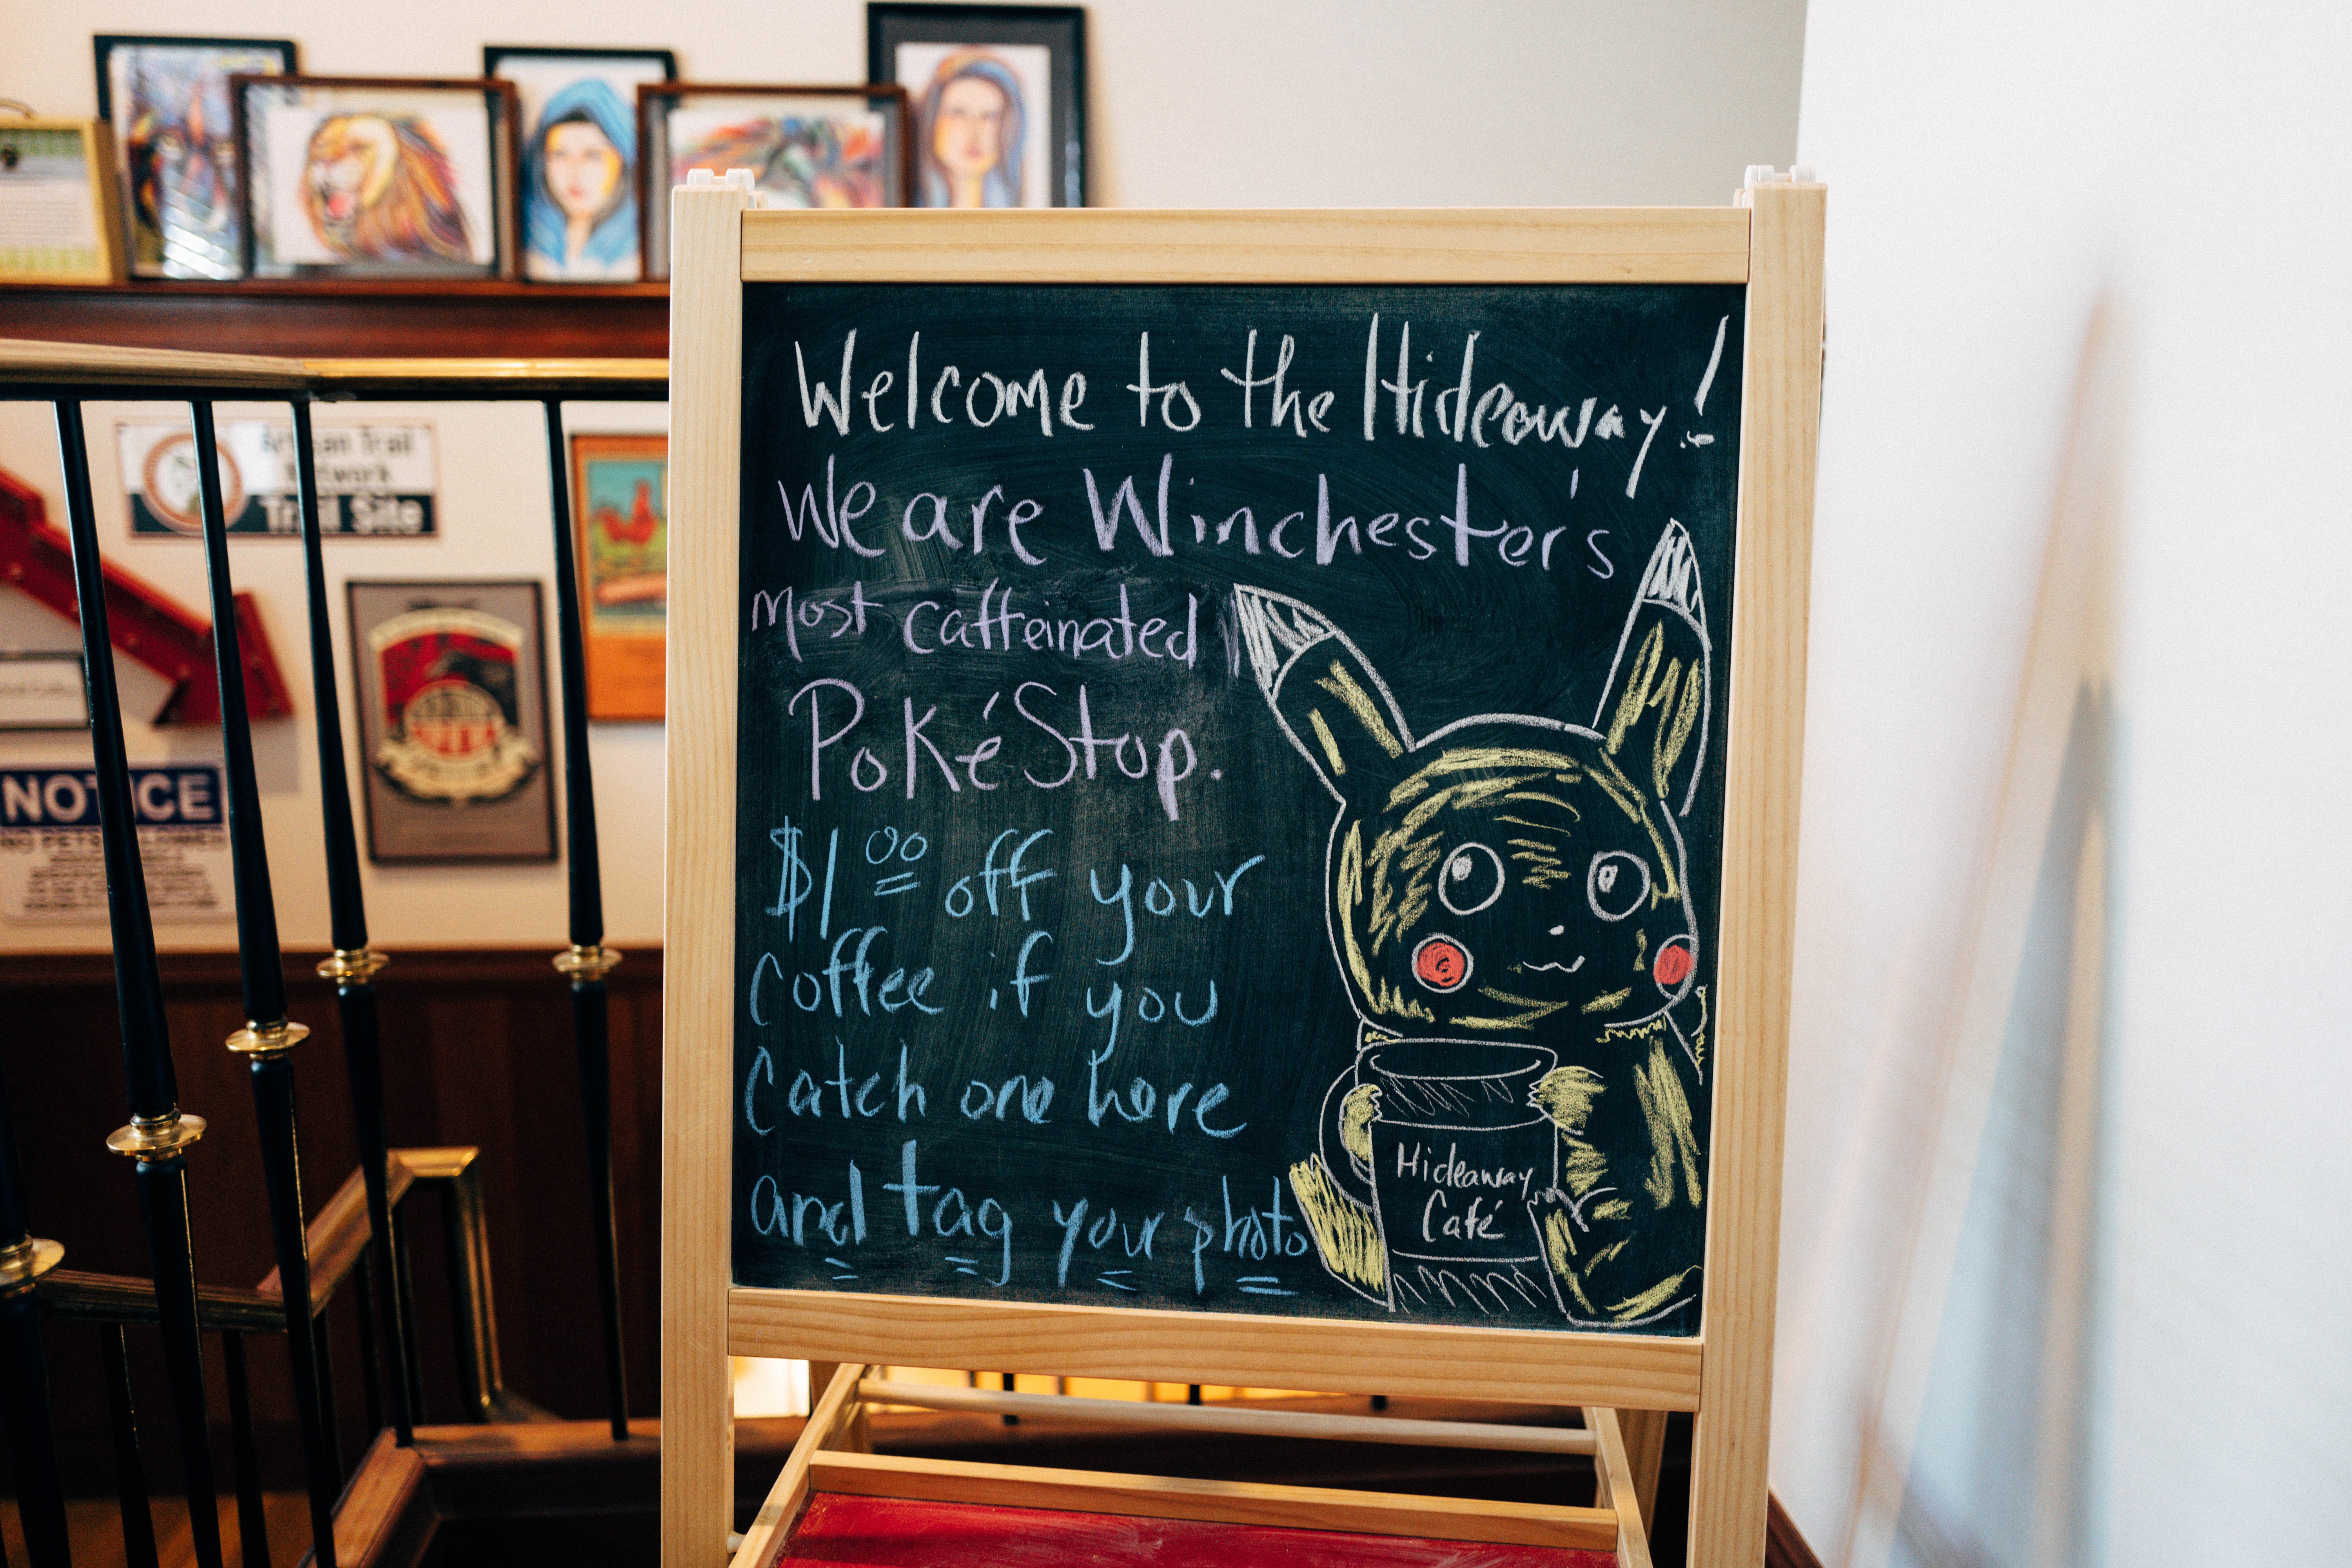 Welcome to the Hideaway!
We are Winchester's
most caffeinated
PokéStop.
$1.00 off your
coffee if you
catch one here
and tag your photo
Hideaway
Café
Artisan Trail
Network
Trail Site
NOTICE
NO PETS ALLOWED